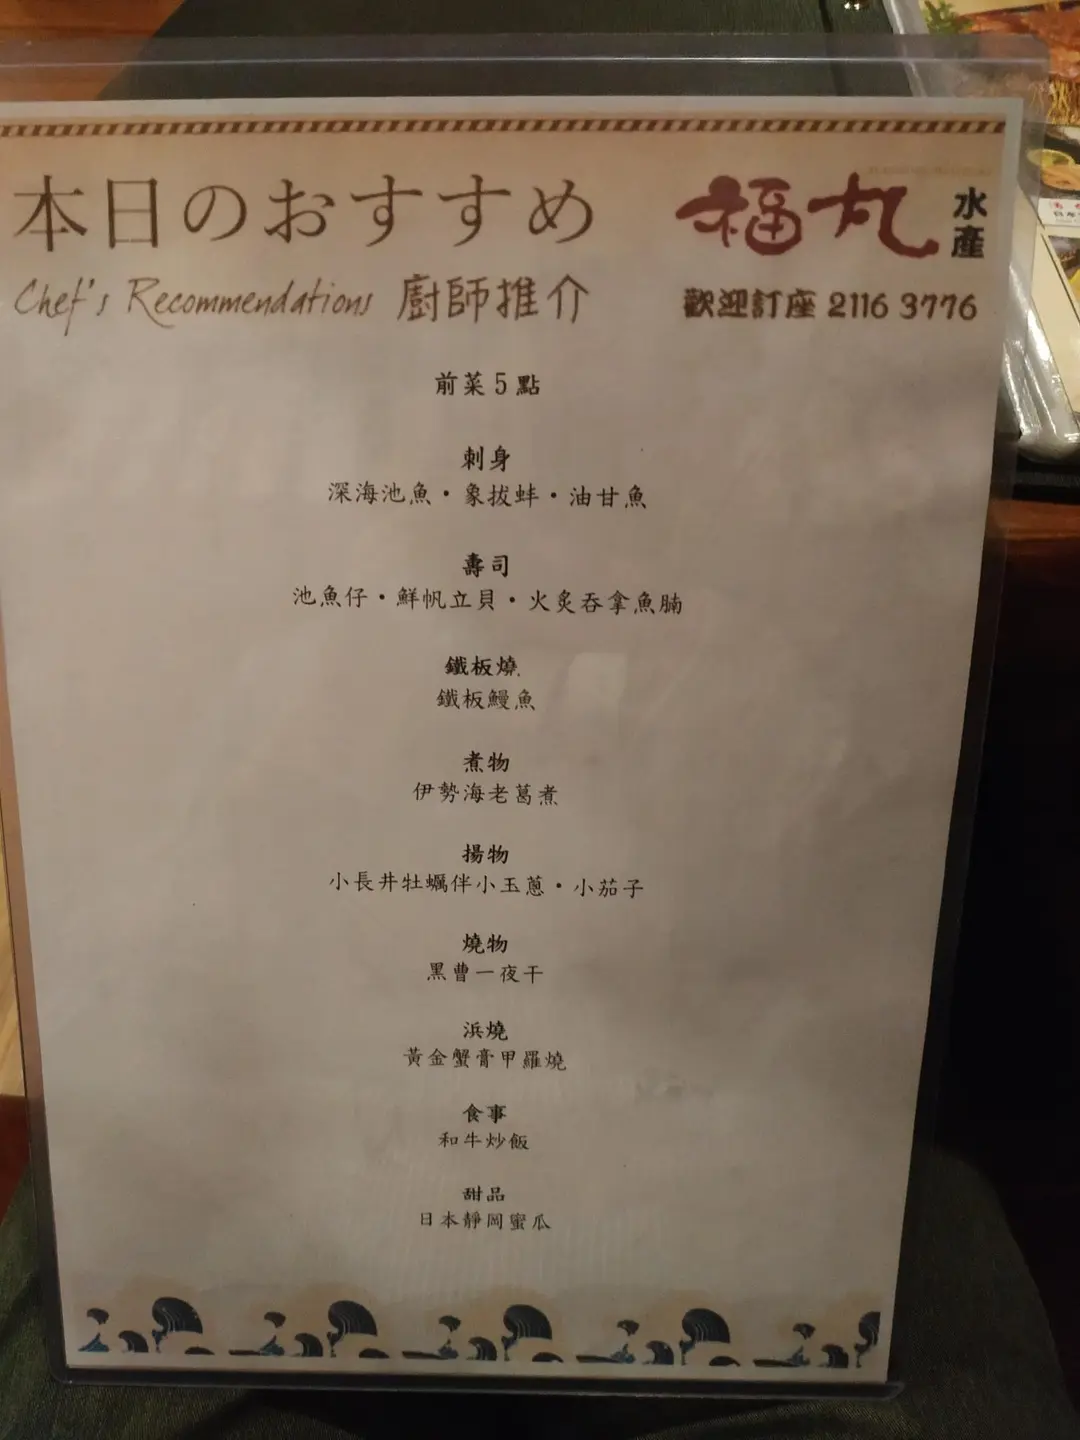 本日のおすすめ
福丸 水產
Chef's Recommendations 廚師推介
歡迎訂座 2116 3776
前菜 5 點
刺身
深海池魚・象拔蚌・油甘魚
壽司
池魚仔・鮮帆立貝・火炙吞拿魚腩
鐵板燒
鐵板鰻魚
煮物
伊勢海老葛煮
揚物
小長井牡蠣伴小玉蔥・小茄子
燒物
黑曹一夜干
浜燒
黃金蟹膏甲羅燒
食事
和牛炒飯
甜品
日本靜岡蜜瓜